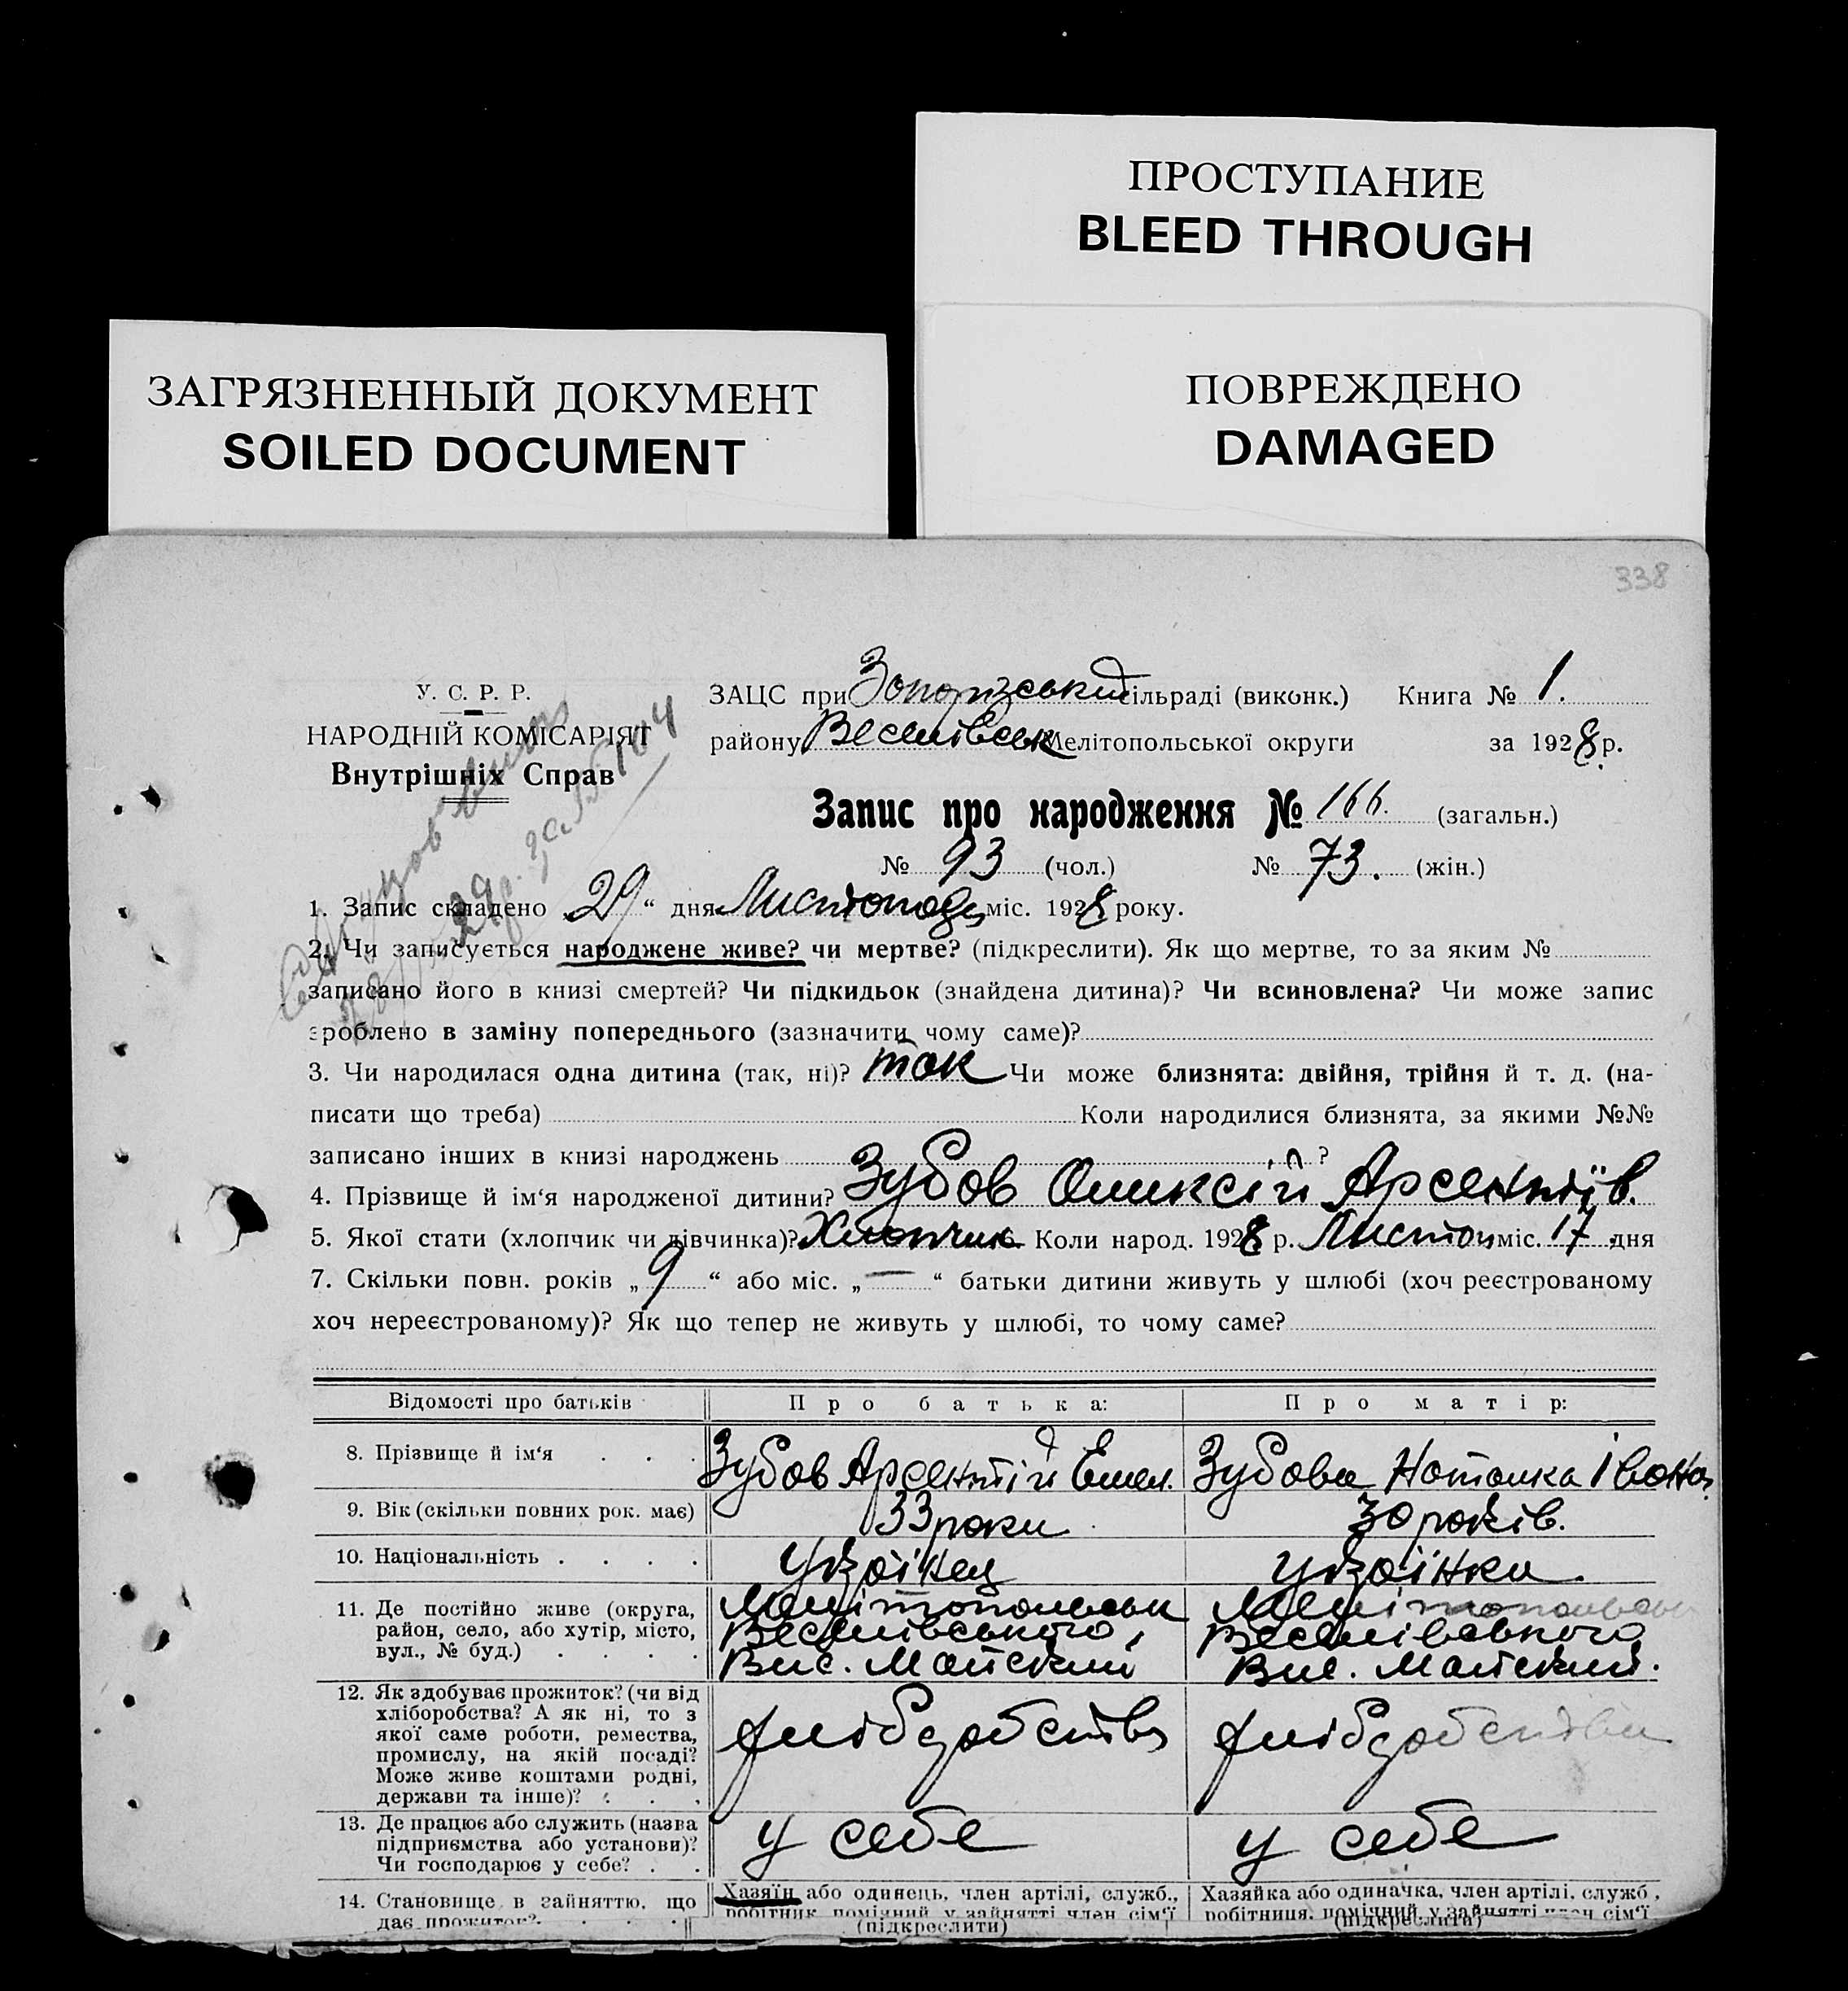 ПРОСТУПАНИЕ
BLEED THROUGH
ЗАГРЯЗНЕННЫЙ ДОКУМЕНТ
SOILED DOCUMENT
ПОВРЕЖДЕНО
DAMAGED
338
У. С. Р. Р.
НАРОДНІЙ КОМІСАРІЯТ
Внутрішніх Справ
ЗАЦС при Запорізській сільраді (виконк.) Книга № 1.
району Веселівськ Мелітопольської округи за 1928 р.
Запис про народження № 166. (загальн.)
№ 93 (чол.) № 73. (жін.)
1. Запис складено „29“ дня Листопада міс. 1928 року.
2. Чи записується народжене живе? чи мертве? (підкреслити). Як що мертве, то за яким №
записано його в книзі смертей? Чи підкидьок (знайдена дитина)? Чи всиновлена? Чи може запис
зроблено в заміну попереднього (зазначити чому саме)?
3. Чи народилася одна дитина (так, ні)? так Чи може близнята: двійня, трійня й т. д. (на-
писати що треба) Коли народилися близнята, за якими №№
записано інших в книзі народжень ?
4. Прізвище й ім‘я народженої дитини? Зубов Оликсій Арсентіїв.
5. Якої стати (хлопчик чи дівчинка)? Хлопчик 6. Коли народ. 1928 р. Листоп міс. 17 дня
7. Скільки повн. років „ 9 “ або міс. „ — “ батьки дитини живуть у шлюбі (хоч реєстрованому
хоч нереєстрованому)? Як що тепер не живуть у шлюбі, то чому саме?
Відомості про батьків Про батька: Про матір:
8. Прізвище й ім‘я . . . Зубов Арсентій Емел. Зубова Наталка Івана
9. Вік (скільки повних рок. має) 33 роки 30 років.
10. Національність . . . . Украінец Украінка.
11. Де постійно живе (округа,
район, село, або хутір, місто,
вул., № буд.) . . . .
Мелітопольськ
Веселівського,
Вис. Майский
Мелітопольськ
Веселівського
Вис. Майский.
12. Як здобуває прожиток? (чи від
хліборобства? А як ні, то з
якої саме роботи, ремества,
промислу, на якій посаді?
Може живе коштами родні,
держави та інше)? . . .
хлібдобства
хлібдобства
13. Де працює або служить (назва
підприємства або установи)?
Чи господарює у себе? . .
у себе
у себе
14. Становище в зайняттю, що
дає прожиток? . . . .
Хазяїн або одинець, член артілі, служб.,
робітник, помічний у зайнятті член сім‘ї
(підкреслити)
Хазяйка або одиначка, член артілі, служб.,
робітниця, помічний у зайнятті член сім‘ї
(підкреслити)